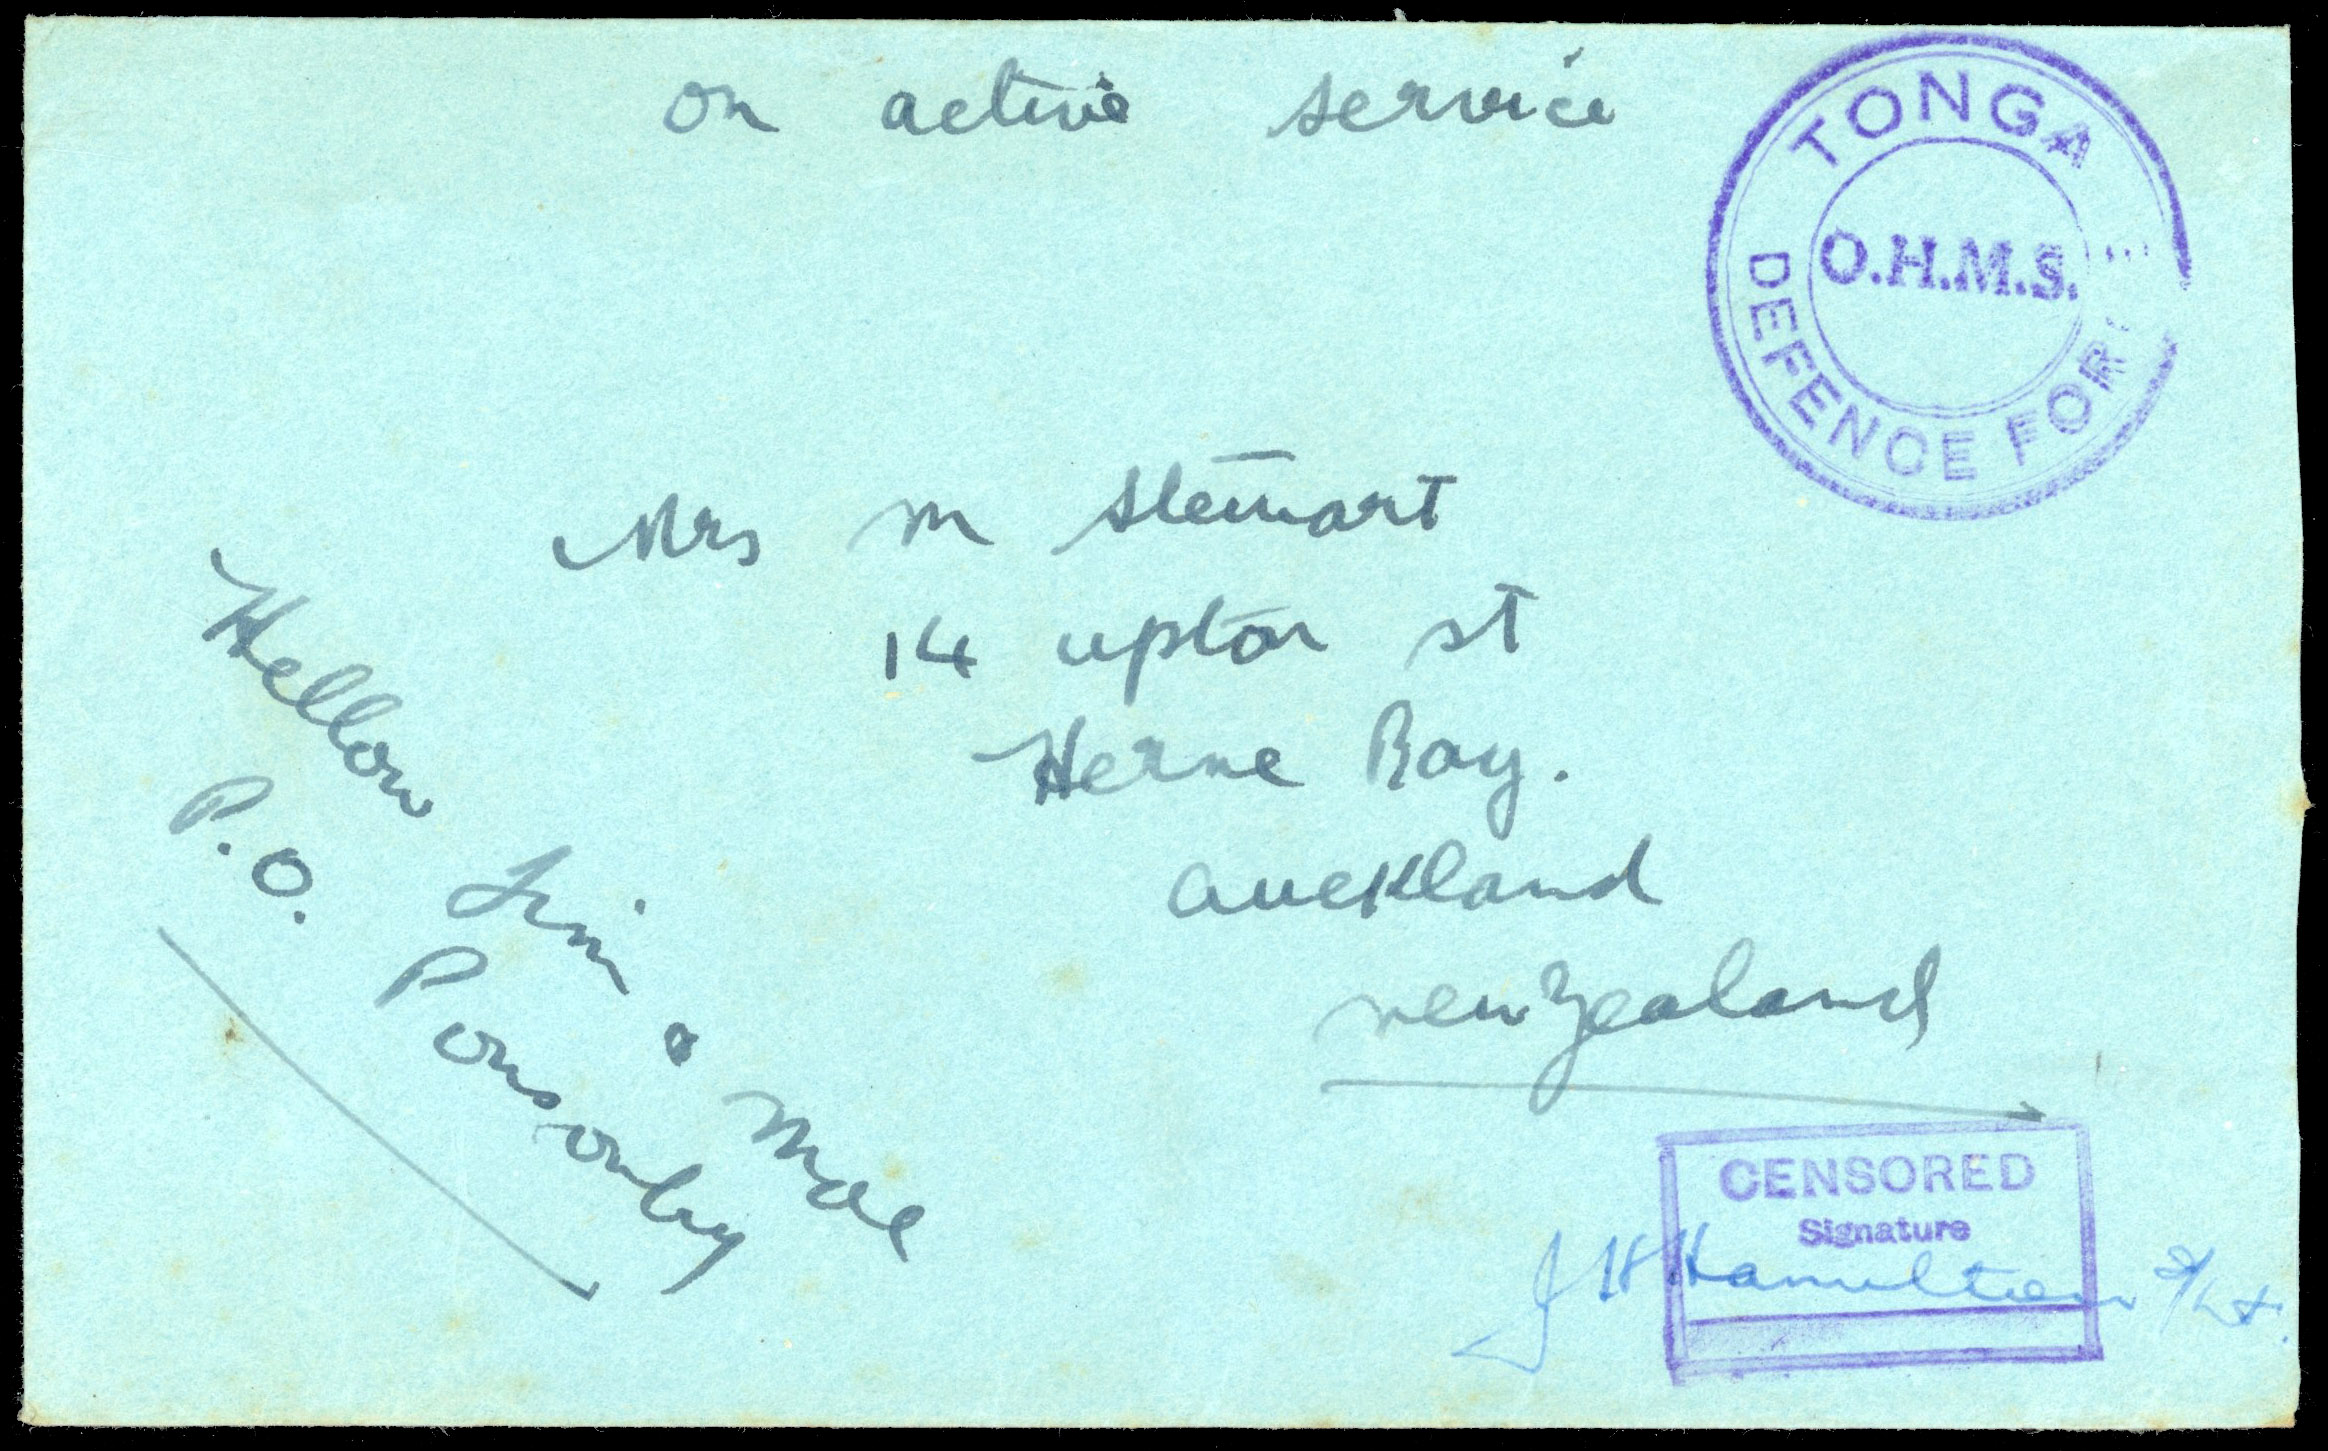 on active service
TONGA
O.H.M.S.
DEFENCE FORCE
Mrs M Stewart
14 upton st
Herne Bay.
auckland
new zealand
Hellow Jim & Mae
P.O. Ponsonby
CENSORED
Signature
J H Hamilton 2/Lt.